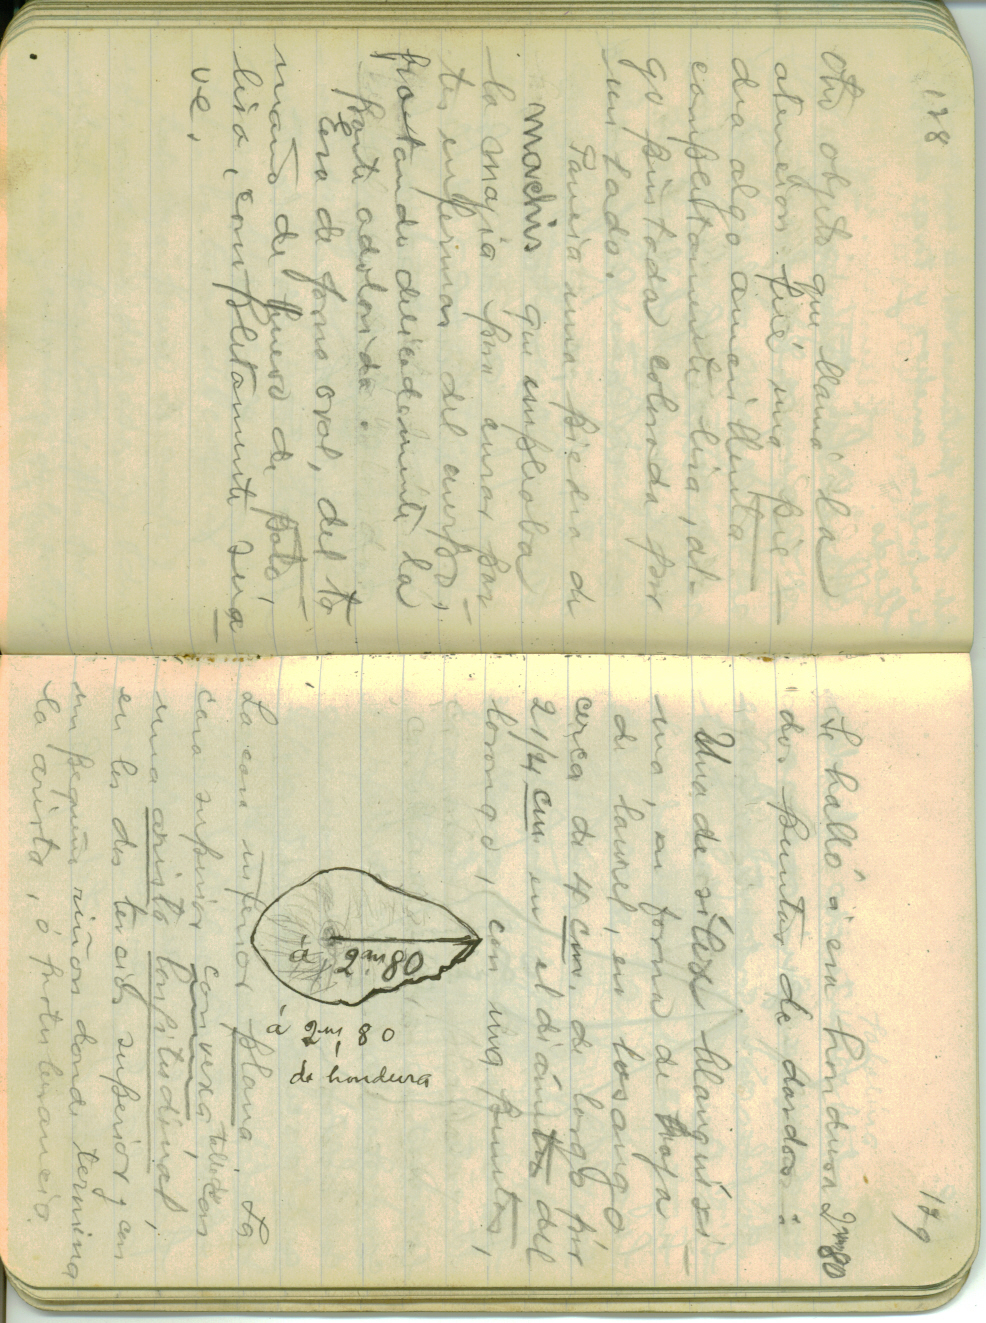 128
Otro objeto que llamó la
atención fué una pie-
dra algo amarillenta
completamente lisa, al-
go pintada colorada por
un lado.
Parecía una piedra de
machis que empleaba
la magia para curar par-
tes enfermas del cuerpo,
frotando delicadamente la
parte adolorida.
Era de forma oval, del ta
maño de huevo de pato,
lisa, completamente sua
ve.
129
Se halló á esa hondura 2m80
"dos puntas de dardos":
Una de silex blanquizi-
ma, en forma de hoja
de laurel, en losango
cerca de 4 cm. de largo por
2 1/4 cm en el diámetro del
losango, con una punta,
á 2m 80
á 2m, 80
de hondura
La cara inferior plana, la
cara superior convexa tallada con
una arista longitudinal,
en los dos tercios superior y con
un pequeño riñon donde termina
la arista, ó protuberancia.